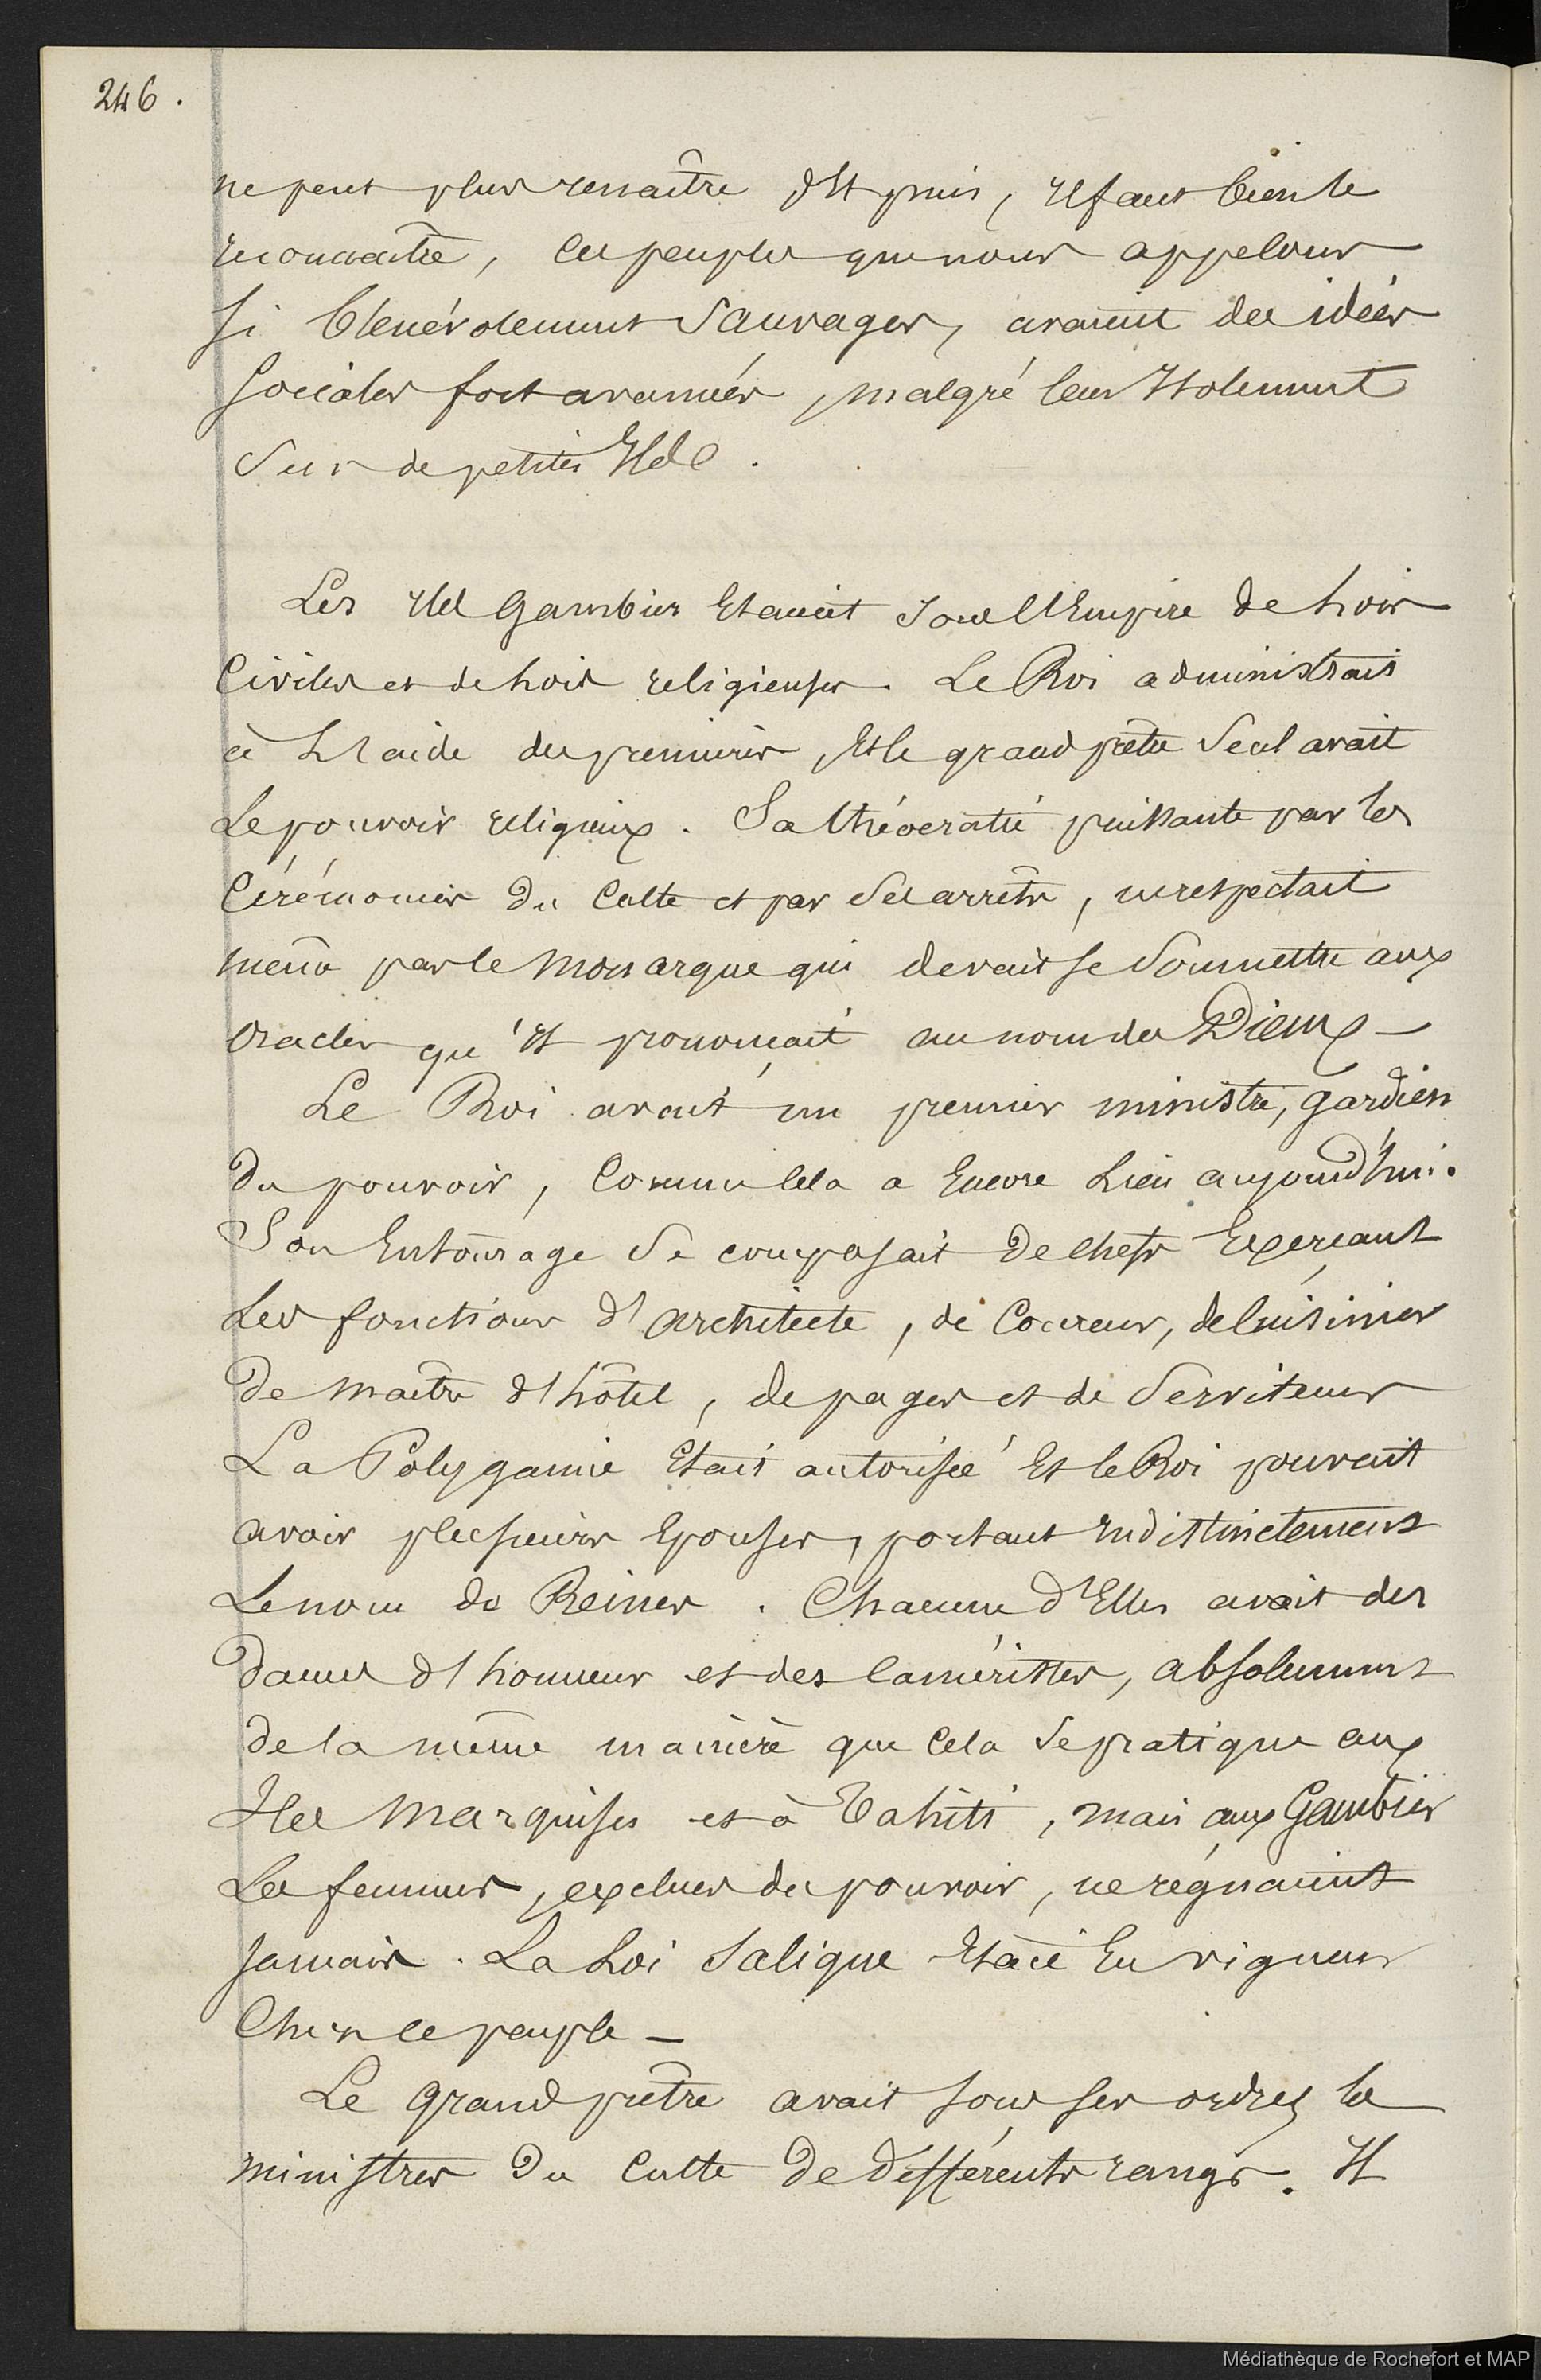 246.
ne peut plus renaître. Et puis, Il faut bien le
reconnaître, ces peuples que nous appelons
si bénévolement Sauvages, avaient des idées
sociales fort avancées, malgré leur Isolement
Sur de petites Iles.
Les Iles Gambier Etaient sous l'Empire de Lois
Civiles et de Lois religieuses. Le Roi administrait
à L'aide des premières, Et le grand prêtre Seul avait
Le pouvoir religieux. Sa théocratie puissante par les
Cérémonies du Culte et par Ses arrêts, respectait
même par le Monarque qui devait se Soumettre aux
Oracles qu'Il prononçait au nom des Dieux –
Le Roi avait un premier ministre, gardien
du pouvoir, Comme Cela a Encore Lieu aujourd'hui.
Son Entourage Se composait de chefs Exerçant
Les fonctions d'architecte, de Coureur, de Cuisinier
de maître d'hôtel, de pages et de Serviteurs
La Polygamie Etait autorisée Et le Roi pouvait
avoir plusieurs Epouses, portant Indistinctement
Le nom de Reines. Chacune d'Elles avait des
dames d'honneur et des Caméristes, absolument
de la même manière que Cela Se pratique aux
Iles Marquises et à Tahiti, mais aux Gambier
Les femmes, exclues du pouvoir, ne régnaient
Jamais. La Loi Salique Etait En vigueur
Chez ce peuple –
Le Grand prêtre avait sous ses ordres les
ministres du Culte de différents rangs. Il
Médiathèque de Rochefort et MAP